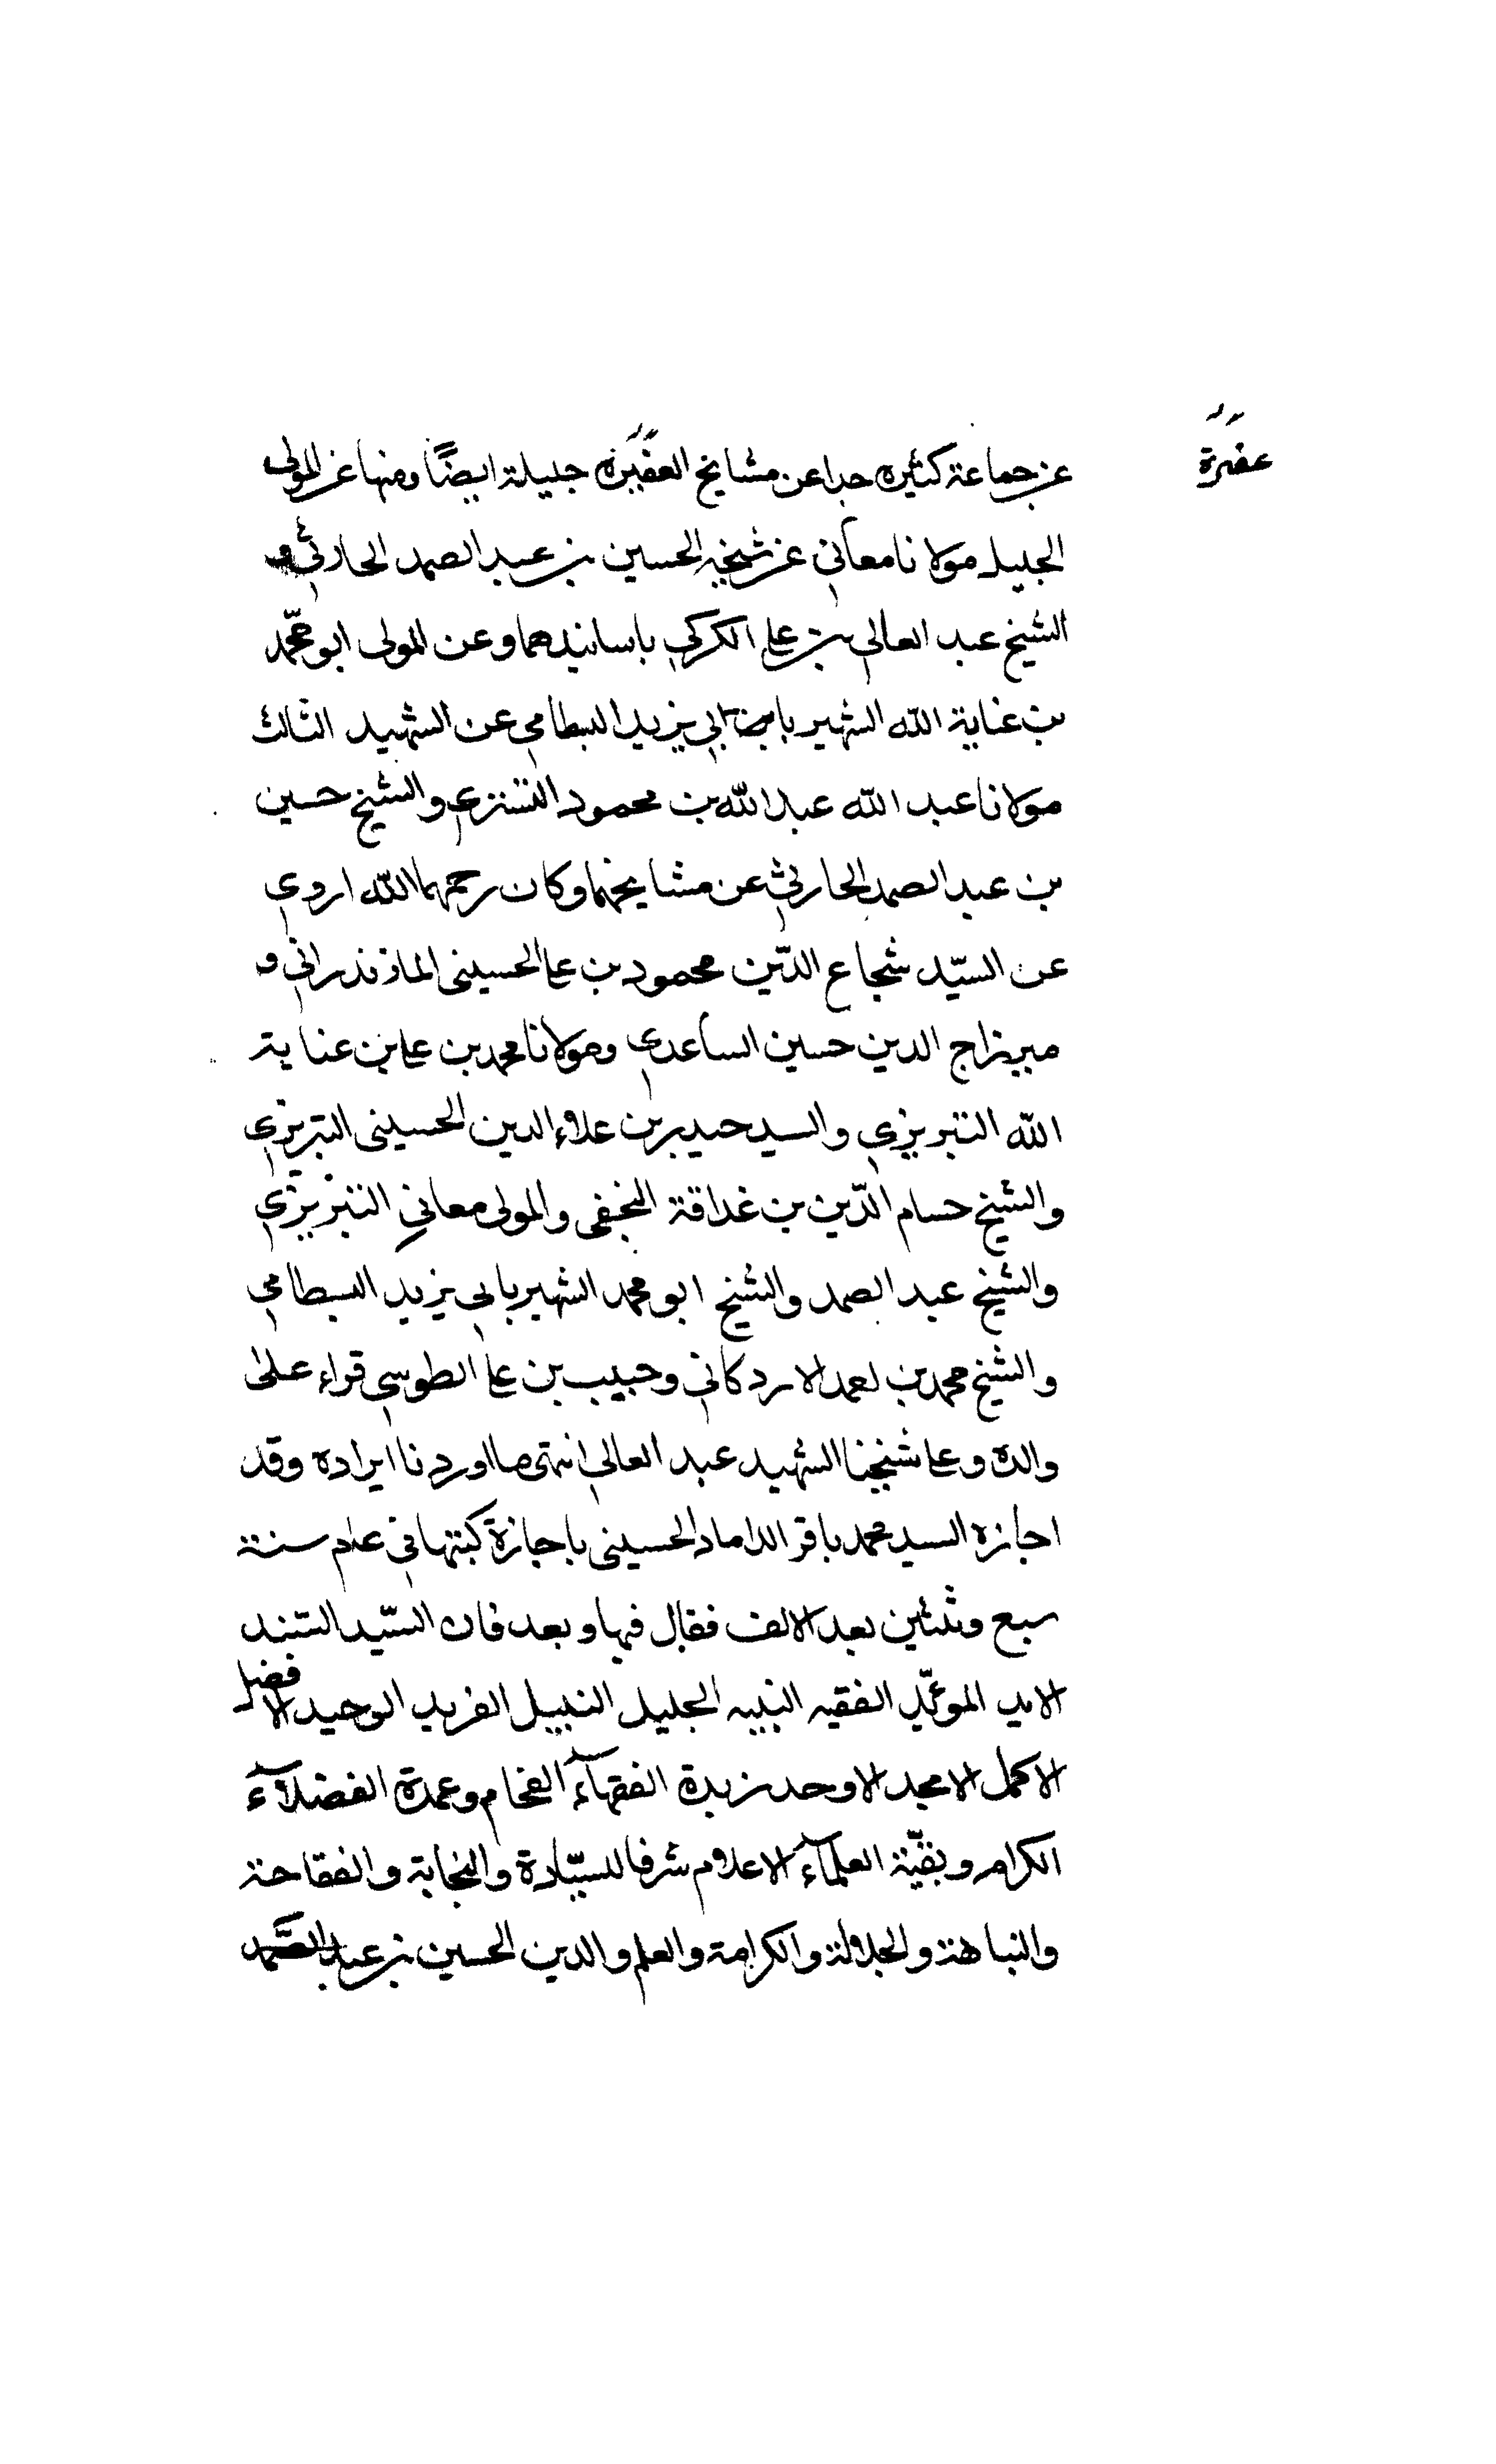 عن جماعة كثيره جدا عن مشايخ العفيرة جليلة ايضًا ومنها عن المولى
عفيرة
الجليل مولانا معاني عن شيخه الحسين بن عبد الصمد الحارثي و
الشيخ عبد العالي بن علي الكركي باسانيدهما وعن المولى ابو محمّد
بن عناية الله الشهير بابي يزيد البسطامي عن الشهيد الثالث
مولانا عبد الله عبد الله بن محمود التستري والشيخ حسين
بن عبد الصمد الحارثي عن مشايخهما وكان رحمهما الله اروى
عن السيّد شجاع الدّين محمود بن علي الحسيني المازندراني و
ميرزاج الدين حسين الساعدي ومولانا محمد بن علي بن عناية
الله التبريزي والسيد حيدر بن علاء الدين الحسيني التبريزي
والشيخ حسام الدّين بن غداقة النجفي والمولى معاني التبريزي
والشيخ عبد الصمد والشيخ ابو محمد الشهير بابي يزيد البسطامي
والشيخ محمد بن احمد الاردكاني وحبيب بن علي الطوسي قراء على
والده وعلى شيخنا الشهيد عبد العالي انتهى ما اوردنا ايراده وقد
اجازه السيد محمد باقر الداماد الحسيني باجازة كتبها في عام سنة
سبع وثلثين بعد الالف فقال فيها وبعد فان السّيد السّند
الايد المويّد الفقيه النبيه الجليل النبيل الفريد الوحيد الافضل
الاكمل الامجد الاوحد زبدة الفقهآء الفخام وعمدة الفضلآء
الكرام وبقيّة العلمآء الاعلام شرفا للسيّادة والنجابة والفقاحة
والنباهة والجلالة والكرامة والعلم والدين الحسين بن عبد الصّمد